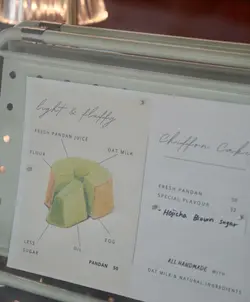 light & fluffy
FRESH PANDAN JUICE
FLOUR
OAT MILK
LESS
SUGAR
OIL
EGG
PANDAN
Chiffon Cake
FRESH PANDAN
SPECIAL FLAVOUR
Hojicha Brown Sugar
ALL HANDMADE WITH
OAT MILK & NATURAL INGREDIENTS